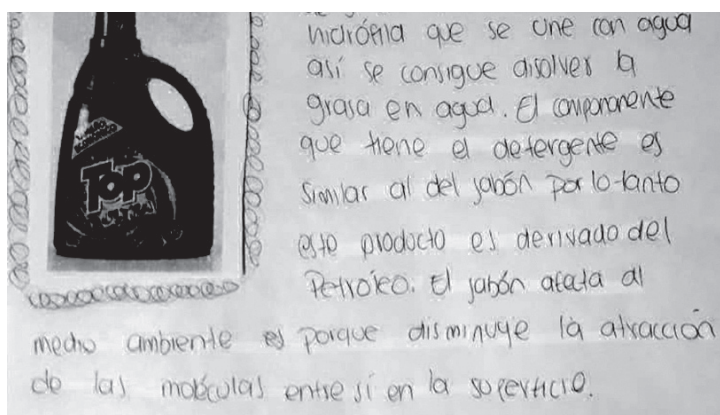 hidrófila que se une con agua
así se consigue disolver la
grasa en agua. El componente
que tiene el detergente es
Top
similar al del jabón por lo-tanto
este producto es derivado del
Petróleo. El jabón afecta al
medio ambiente es porque disminuye la atracción
de las moléculas entre sí en la superficie.